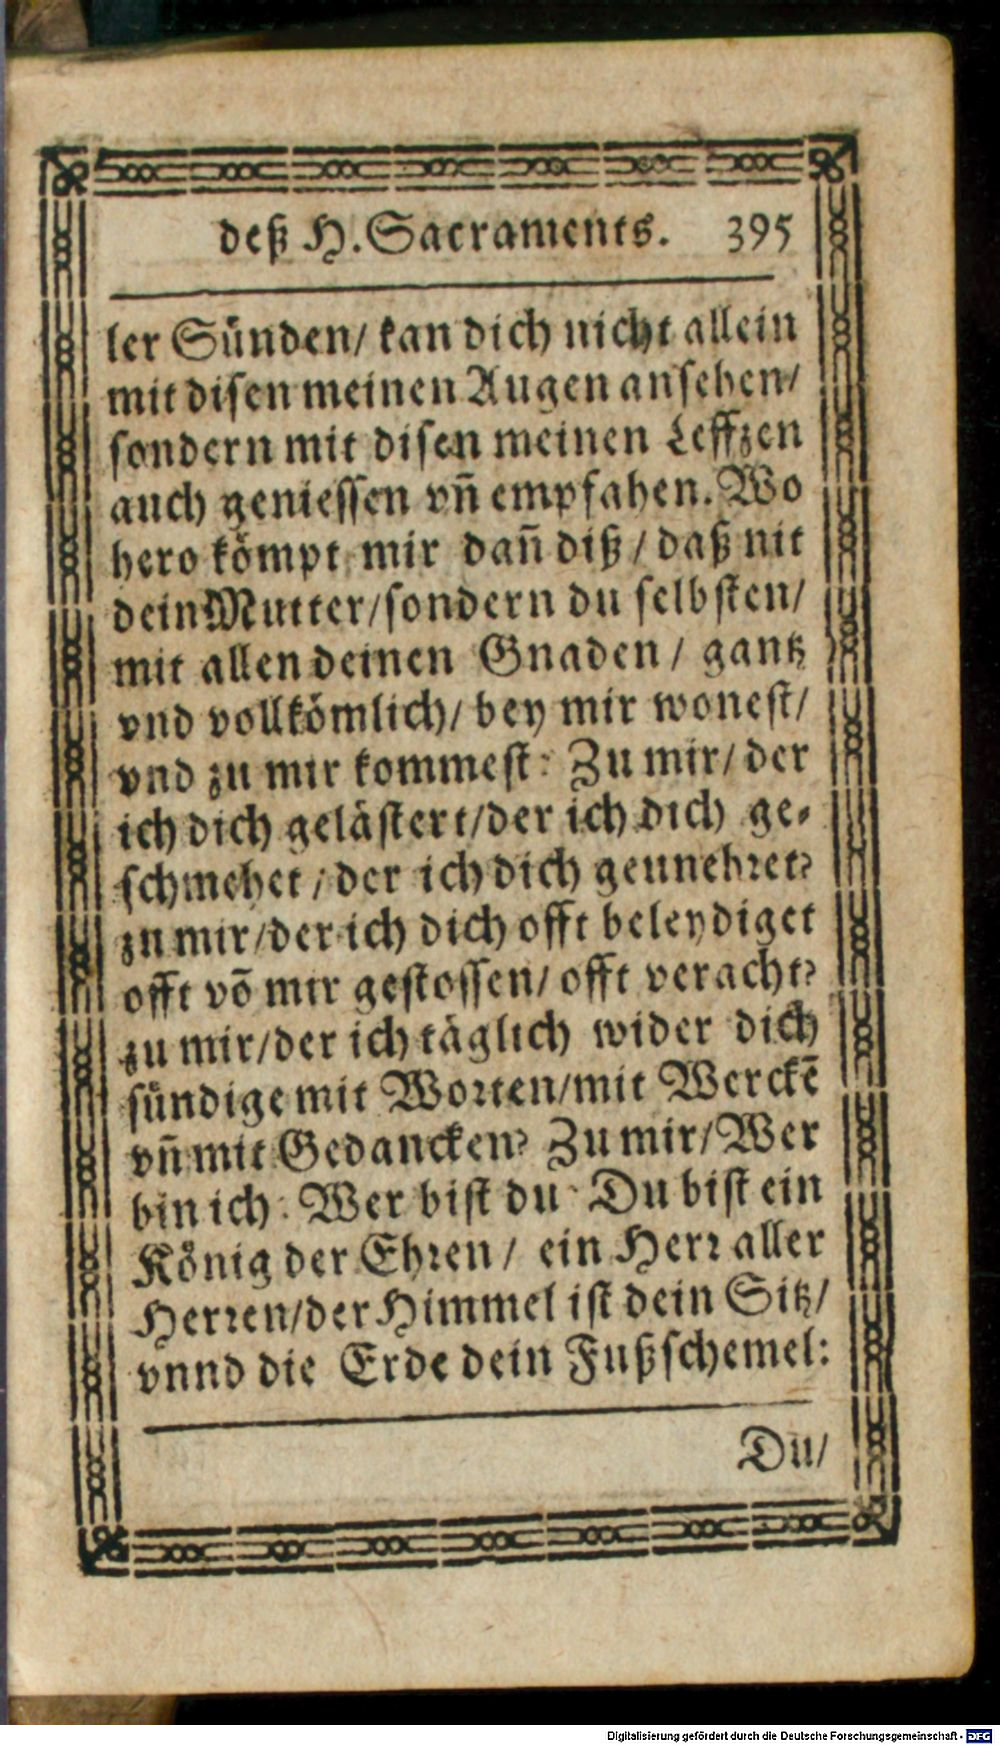 deß H. Sacraments. 395
ler Sünden/ kan dich nicht allein
mit disen meinen Augen ansehen/
sondern mit disen meinen Leffzen
auch geniessen vn̄ empfahen. Wo
hero kömpt mir dan̄ diß/ daß nit
dein Mutter/sondern du selbsten/
mit allen deinen Gnaden/ gantz
vnd vollkömlich/ bey mir wonest/
vnd zu mir kommest: Zu mir/ der
ich dich gelästert/der ich dich ge-
schmehet/ der ich dich geunehret?
zu mir/der ich dich offt beleydiget
offt vō mir gestossen/ offt veracht?
zu mir/der ich täglich wider dich
sündige mit Worten/mit Werckē
vn̄ mit Gedancken? Zu mir/ Wer
bin ich: Wer bist du? Du bist ein
König der Ehren/ ein Herr aller
Herren/der Himmel ist dein Sitz/
vnnd die Erde dein Fußschemel:
Du/
Digitalisierung gefördert durch die Deutsche Forschungsgemeinschaft - DFG